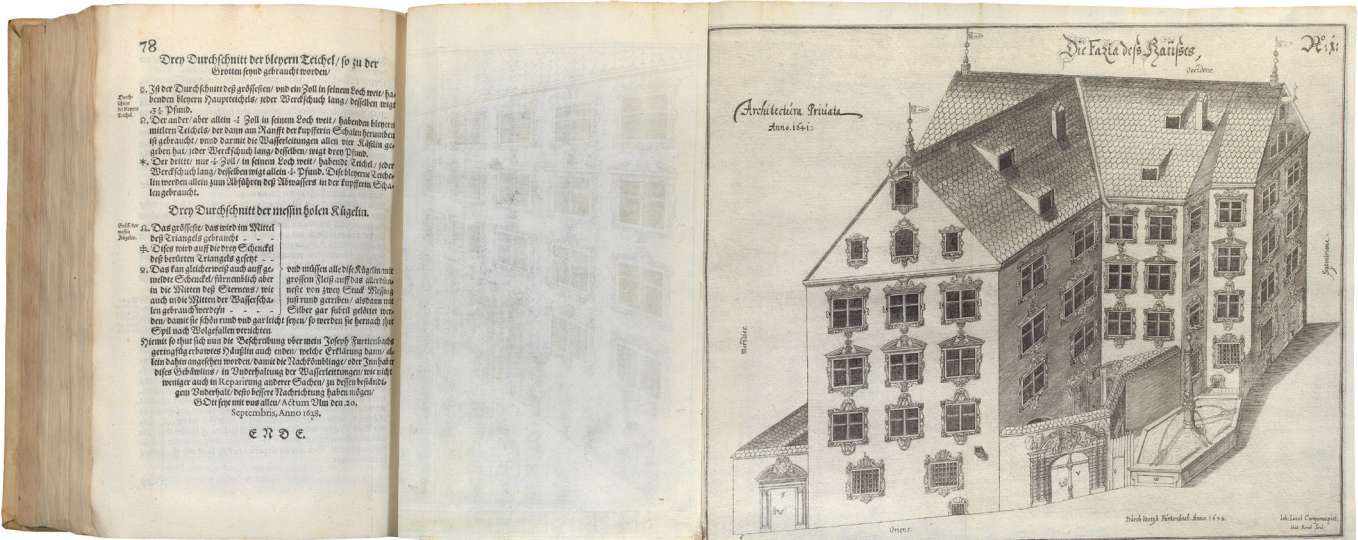 78
Drey Durchschnitt der bleyern Teichel/ so zu der
Grotten seynd gebraucht worden/
Ist der Durchschnitt deß grössesten/ vnd ein Zoll in seinem Loch weit/ ha-
benden bleyern Hauptteichels/ jeder Werckschuch lang/ desselben wigt
Pfund.
Der ander/ aber allein Zoll in seinem Loch weit/ habenden bleyern
mitlern Teichels/ der dann am Ranfft der kupfferin Schalen herumben
ist gebraucht/ vnnd darmit die Wasserleitungen allen vier Kästlin ge-
geben hat/ jeder Werckschuch lang/ desselben/ wigt drey Pfund.
Der dritte/ nur Zoll/ in seinem Loch weit/ habende Teichel/ jeder
Werckschuch lang/ desselben wigt allein Pfund. Dise bleyerne Teiche-
lin werden allein zum Abführen deß Abwassers in der kupfferin Scha-
len gebraucht.
Drey Durchschnitt der messin holen Kügelin.
Das grössest/ das wird im Mittel
deß Triangels gebraucht - - -
Dises wird auff die drey Schenckel
deß berürten Triangels gesetzt - -
Das kan gleicherweiß auch auff ge-
meldte Schenckel/ fürnemblich aber
in die Mitten deß Sternens/ wie
auch in die Mitten der Wasserscha-
len gebraucht werden - - -
vnd müssen alle dise Kügelin/ mit
grossem Fleiß auff das allerdün-
nest von zwey Stuck Messing
just rund getriben/ alsdann mit
Silber gar subtil gelötet wer-
den/ damit sie schön rund vnd gar leicht seyen/ so werden sie hernach ihr
Spil nach Wolgefallen verrichten.
Hiemit so thut sich nun die Beschreibung vber mein Joseph Furttenbachs
geringfüg erbawtes Häußlin auch enden/ welche Erklärung dann/ al-
lein dahin angesehen worden/ damit die Nachkömblinge/ oder Innhaber
dises Gebäwlins/ in Vnderhaltung der Wasserleittungen/ wie nicht
weniger auch in Reparirung anderer Sachen/ zu dessen beständi-
gem Vnderhalt/ desto bessere Nachrichtung haben mögen/
GOtt seye mit vns allen/ Actum Vlm den 20.
Septembris, Anno 1638.
E N D E.
Die Fazia deß Haußes,
No: 1:
Occidens.
Architectura Priuata
Anno. 1641:
Meridies.
Septentrione.
Oriens.
Durch Ioseph Furtenbach. Anno. 1638.